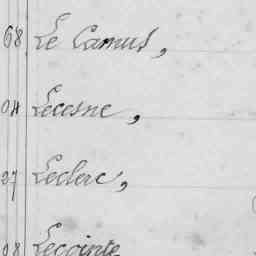 68 Le Camus,
04 Lecesne,
27 Leclerc,
08 Lecointe